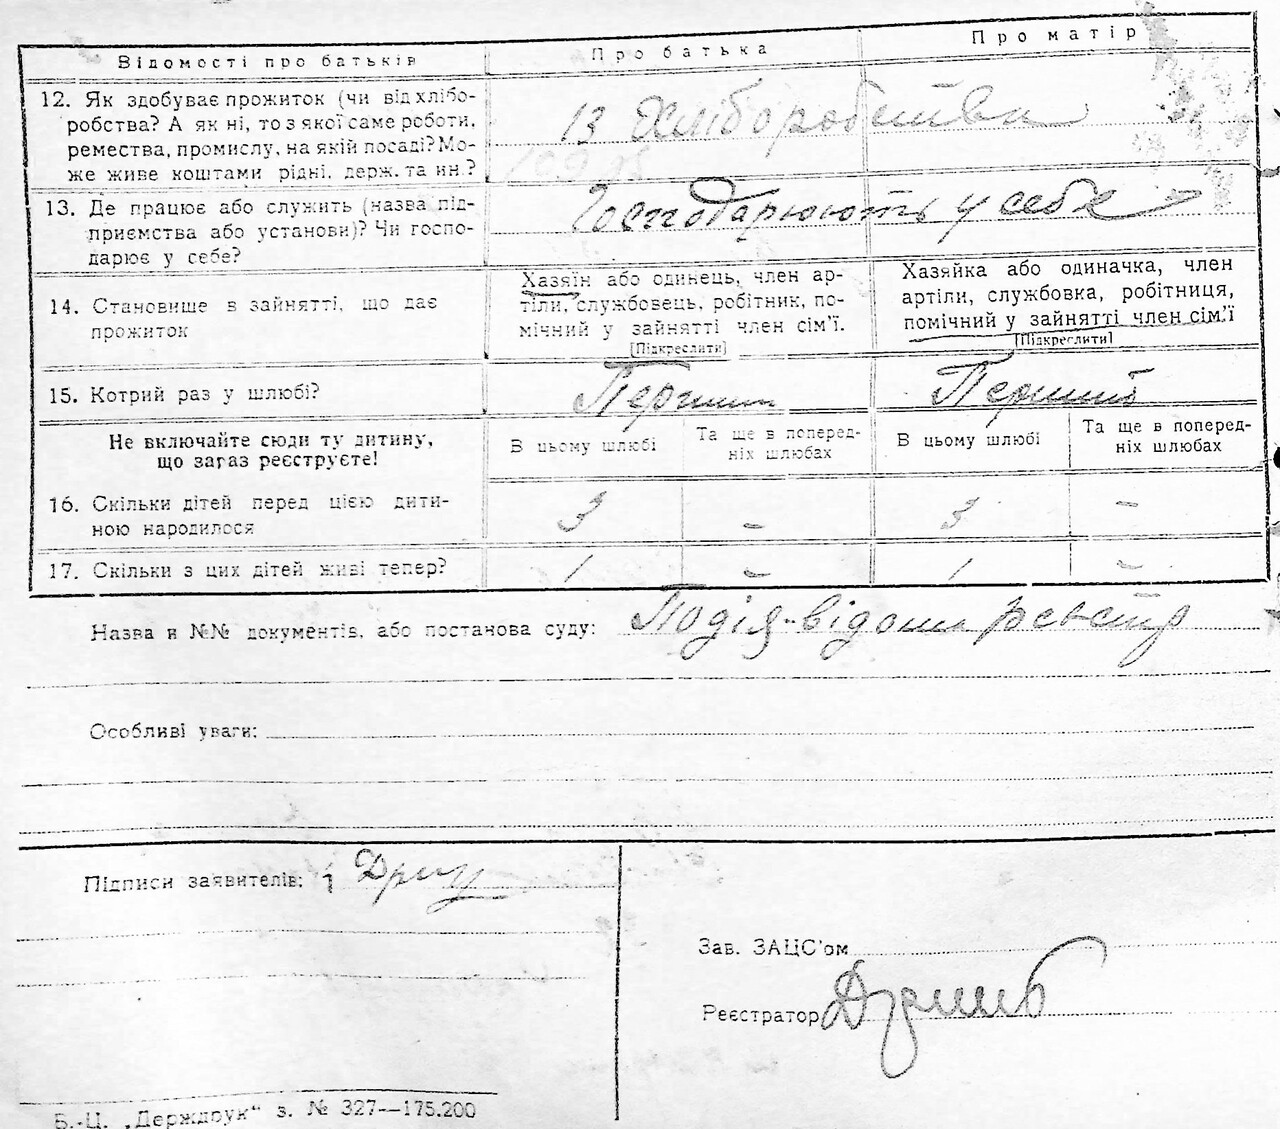 Відомості про батьків
Про батька
Про матір
12. Як здобуває прожиток (чи від хлібо-
робства? А як ні, то з якої саме роботи,
ремества, промислу, на якій посаді? Мо-
же живе коштами рідні, держ. та ин.?
Хліборобства
13. Де працює або служить (назва під-
приємства або установи)? Чи госпо-
дарює у себе?
Господарюють у себе
14. Становище в зайнятті, що дає
прожиток
Хазяїн або одинець, член ар-
тіли, службовець, робітник, по-
мічний у зайнятті член сім'ї.
[Підкреслити]
Хазяйка або одиначка, член
артіли, службовка, робітниця,
помічний у зайнятті член сім'ї
[Підкреслити]
15. Котрий раз у шлюбі?
Перший
Перший
Не включайте сюди ту дитину,
що загаз реєструєте!
В цьому шлюбі
Та ще в поперед-
ніх шлюбах
В цьому шлюбі
Та ще в поперед-
ніх шлюбах
16. Скільки дітей перед цією дити-
ною народилося
3 - 3 -
17. Скільки з цих дітей живі тепер?
1 - 1 -
Назва и №№ документів, або постанова суду: Подія відома
Особливі уваги:
Підписи заявителів: 1
Зав. ЗАЦС'ом
Реєстратор
Б.-Ц. „Держдрук“ з. № 327—175.200